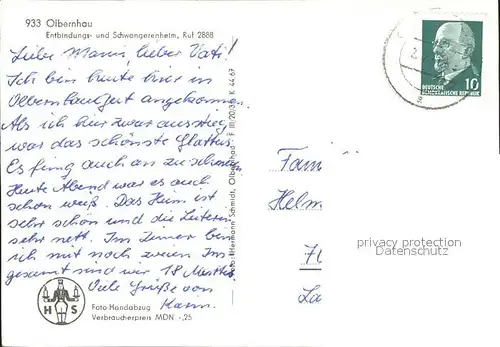 933 Olbernhau
Entbindungs- und Schwangerenheim, Ruf 2888
Liebe Mami, lieber Vati!
Ich bin heute hier in
Olbernhau gut angekommen.
Als ich hier zwar ausstieg
war das schönste Glatteis.
Es fing auch an zu schneien
Heute Abend war es auch
schon weiß. Das Heim ist
sehr schön und die Leiterin
sehr nett. Im Zimmer bin
ich mit noch zweien. Ins
gesamt sind wir 18 Muttis.
Viele Grüße von
Karin.
H S
Foto-Handabzug
Verbraucherpreis MDN -,25
Foto: Hermann Schmidt, Olbernhau F III/20/3 K 44 67
DEUTSCHE
DEMOKRATISCHE REPUBLIK
10
Fam
Helm
privacy protection
Datenschutz